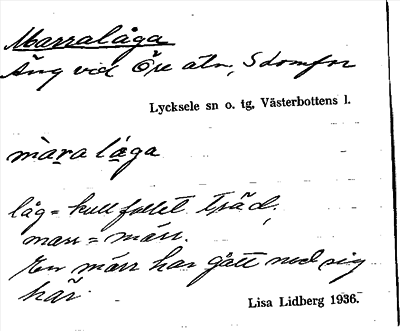 Marralåga
Äng vid Öre älv, S domfor
Lycksele sn o. tg, Västerbottens l.
màra låga
låg = kullfallet träd,
marr = märr.
En märr har gått ned sig
här.
Lisa Lidberg 1936.